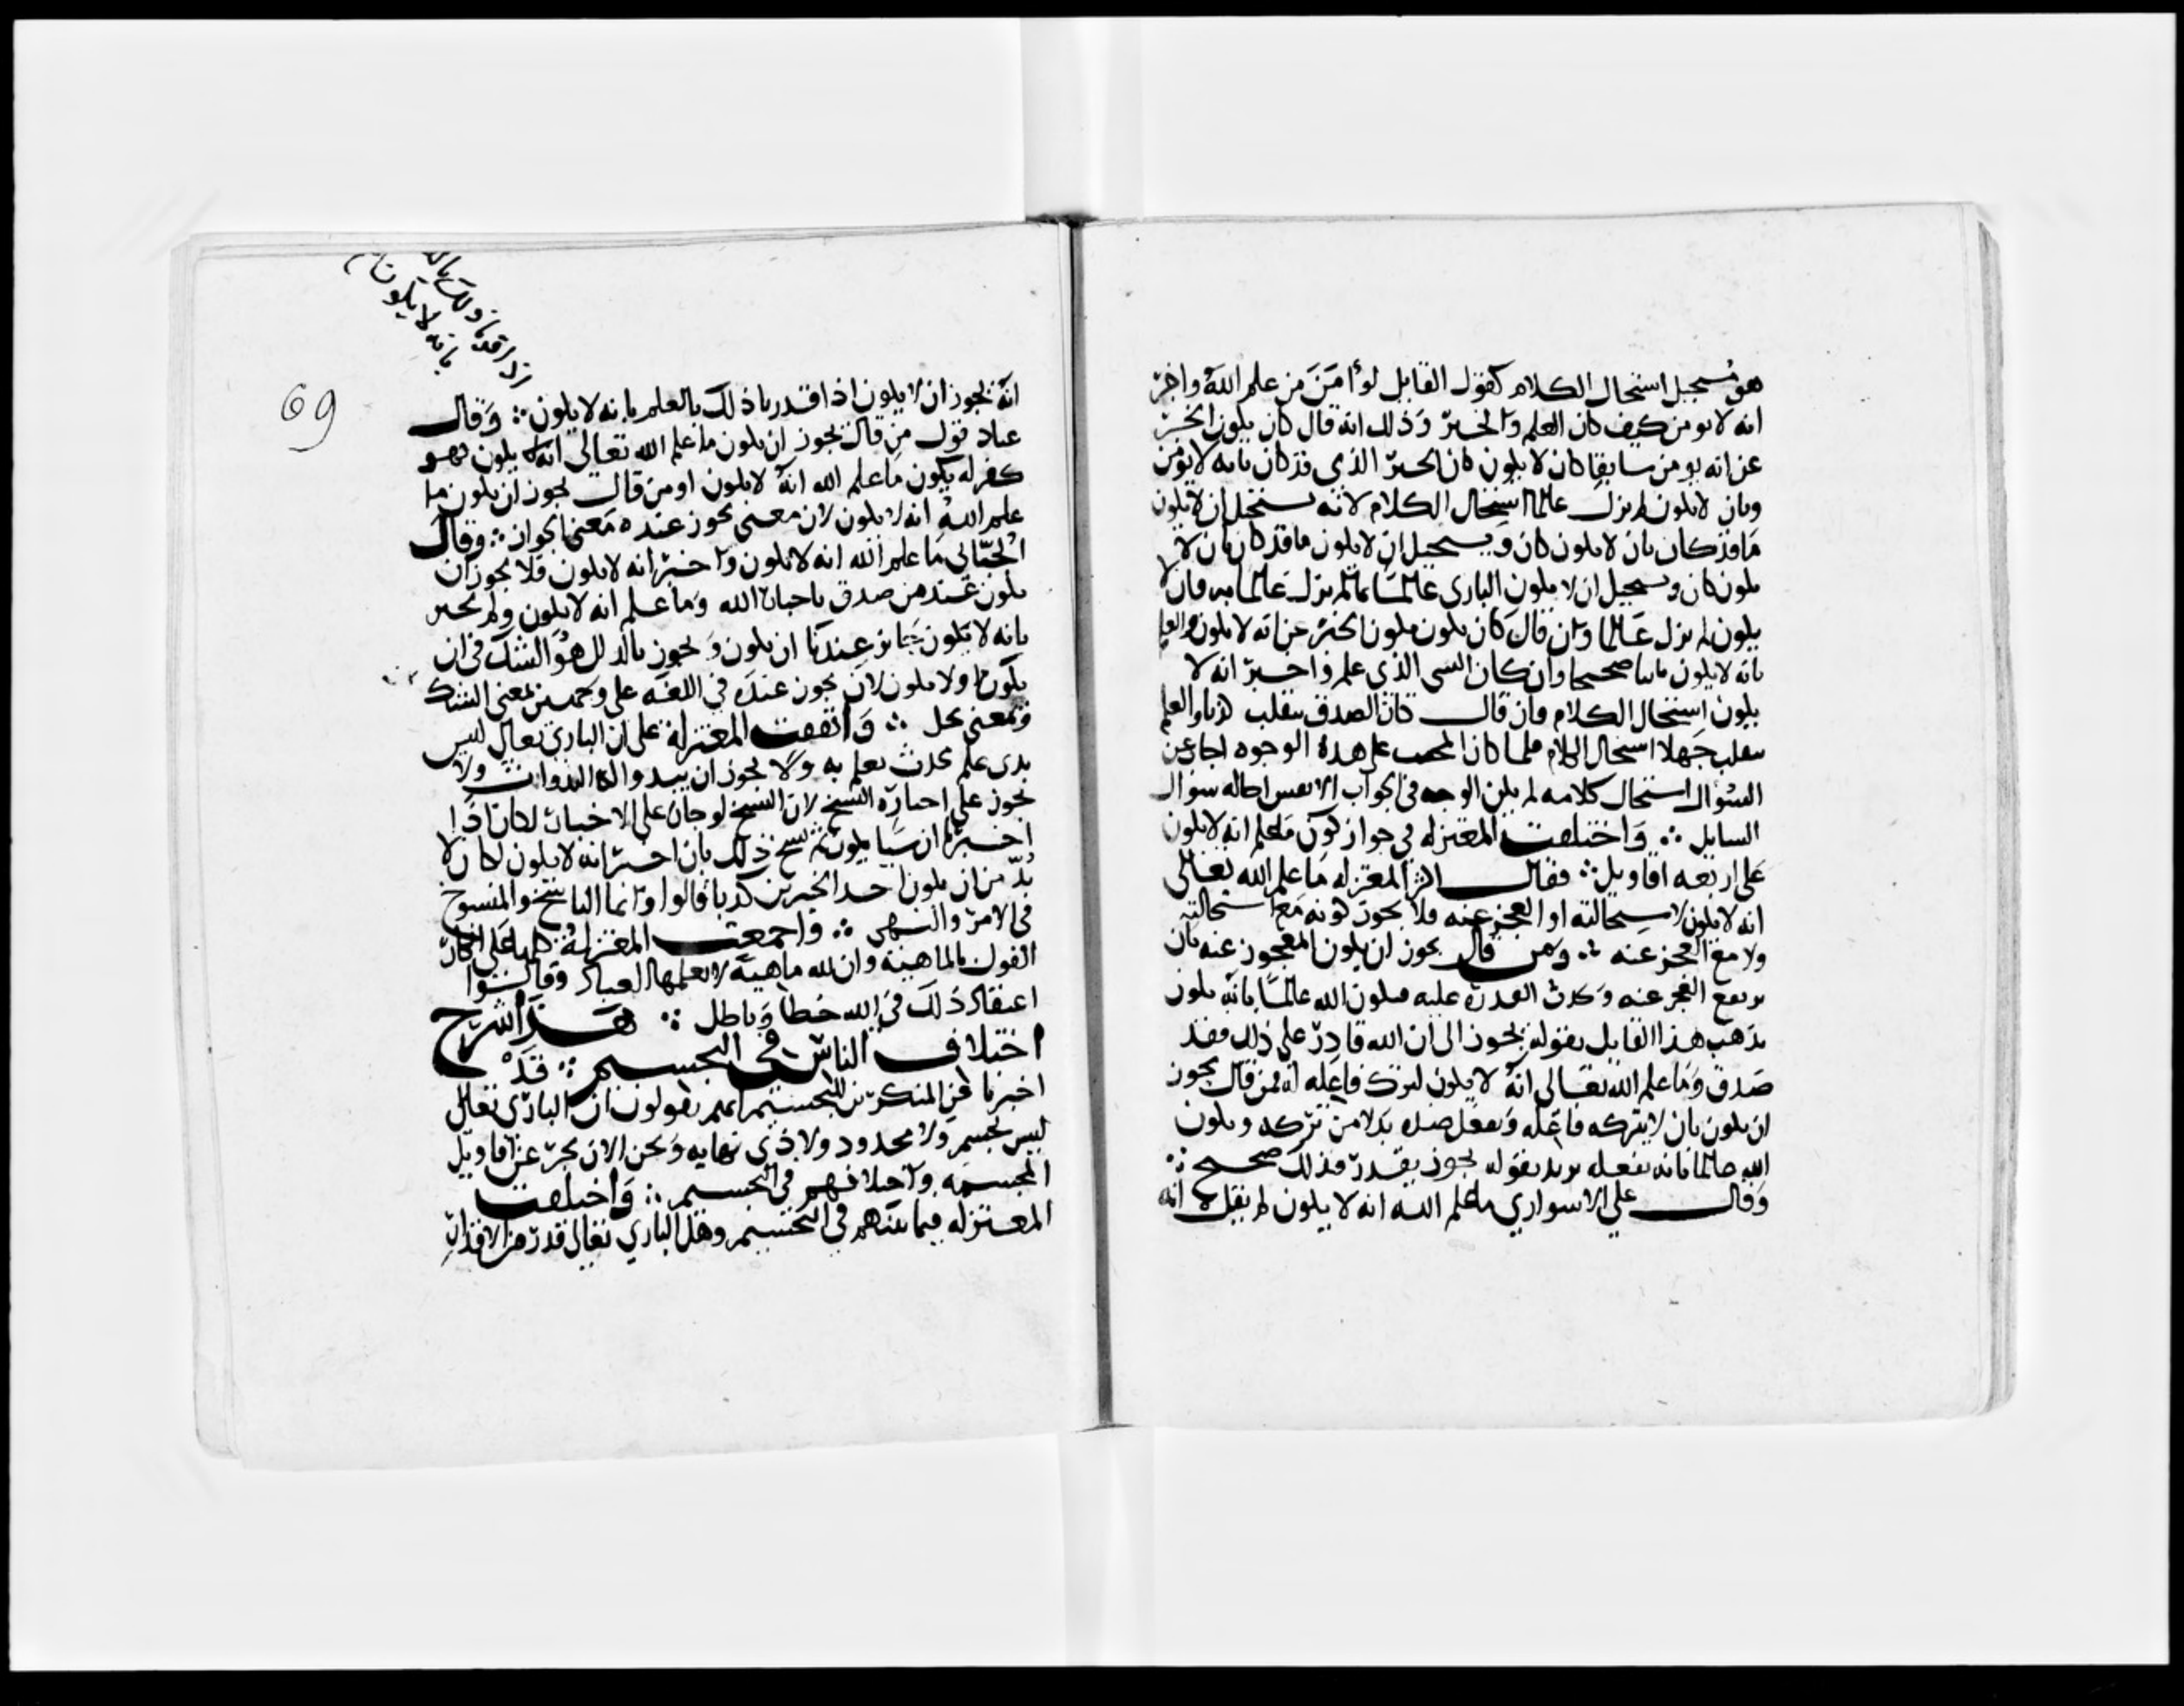 هو مستحيل استحال الكلام كقول القايل لو أمن من علم الله واخبر
انه لا يومن كيف كان العلم والخبر وذلك انه قال كان يكون الخبر
عن انه يومن سابقا كان لا يكون كان الخبر الذى قد كان بانه لا يومن
وبان لا يكون لم يزل عالما استحال الكلام لانه يستحيل ان لا يكون
ما قد كان بان لا يكون كان ويستحيل ان لا يكون ما قد كان بان لا
يكون كان ويستحيل ان لا يكون البارى عالما بما لم يزل عالما به وان لا
يكون لم يزل عالما وان قال كان يكون الخبر عن انه لا يكون والعلم
بانه لا يكون ثابتا صحيحا وان كان الشى الذى علم واخبر انه لا
يكون استحال الكلام وان قال كان الصدق ينقلب كذبا والعلم
ينقلب جهلا استحال الكلام فلما كان المجيب على هذه الوجوه اجاب عن
السؤال استحال كلامه لم يكن الوجه فى الجواب الا نفس احاله سوال
السايل ∴ واختلفت المعتزله في جواز كون ما علم انه لا يكون
على اربعه اقاويل ∴ فقال اكثر المعتزله ما علم الله تعالى
انه لا يكون لاستحالته او العجز عنه فلا يجوز كونه مع استحالته
ولا مع العجز عنه ∴ ومن قال يجوز ان يكون المعجوز عنه بان
يرتفع العجز عنه وتحدث القدرة عليه فيكون الله عالما بانه يكون
يذهب هذا القايل بقوله يجوز الى ان الله قادر على ذلك فقد
صدق وما علم الله تعالى انه لا يكون لترك فاعله له فمن قال يجوز
ان يكون بان لا يتركه فاعله ويفعل ضده بدلا من تركه ويكون
الله عالما بانه يفعله يريد بقوله يجوز يقدر فذلك صحيح ∴
وقال علي الاسواري ما علم الله انه لا يكون لم يقل انه
بانه لا يكون
69
انه يجوز ان لا يكون اذا قدرنا ذلك بالعلم بانه لا يكون ∴ وقال
عباد قول من قال يجوز ان يكون ما علم الله تعالى انه لا يكون فهو
كقوله يكون ما علم الله انه لا يكون او من قال يجوز ان يكون ما
علم الله انه لا يكون لان معنى يجوز عنده معنى الجواز ∴ وقال
الجبّائي ما علم الله انه لا يكون واخبر انه لا يكون فلا يجوز ان
يكون عند من صدق باخبار الله وما علم انه لا يكون ولم يخبر
بانه لا يكون جايز عندنا ان يكون وتجويزنا لذلك هو الشك فى ان
يكون او لا يكون لان يجوز عنده في اللغه على وجهين بمعنى الشك
وبمعنى يحل ∴ واتفقت المعتزلة على ان البارى تعالى ليس
بذى علم محدث يعلم به ولا يجوز ان يبدو له البدوات ولا
يجوز على اخباره النسخ لان النسخ لو جاز على الاخبار لكان اذا
اخبرنا ان شيا يكون ثم نسخ ذلك بان اخبر انه لا يكون لكان لا
بد من ان يكون احد الخبرين كذبا قالوا وانما الناسخ والمنسوخ
فى الامر والنهى ∴ واجمعت المعتزلة كلها على انكار
القول بالماهية وان لله ماهية لا يعلمها العباد وقالوا
اعتقاد ذلك في الله خطأ وباطل ∴ هذا شرح
اختلاف الناس في التجسيم ∴ قد
اخبرنا عن المنكرين للتجسيم انهم يقولون ان البارى تعالى
ليس بجسم ولا محدود ولا ذى نهايه ونحن الان نخبر عن اقاويل
المجسمه واختلافهم فى التجسيم ∴ واختلفت
المعتزله فيما بينهم في التجسيم وهل البارى تعالى قدر من الاقدار